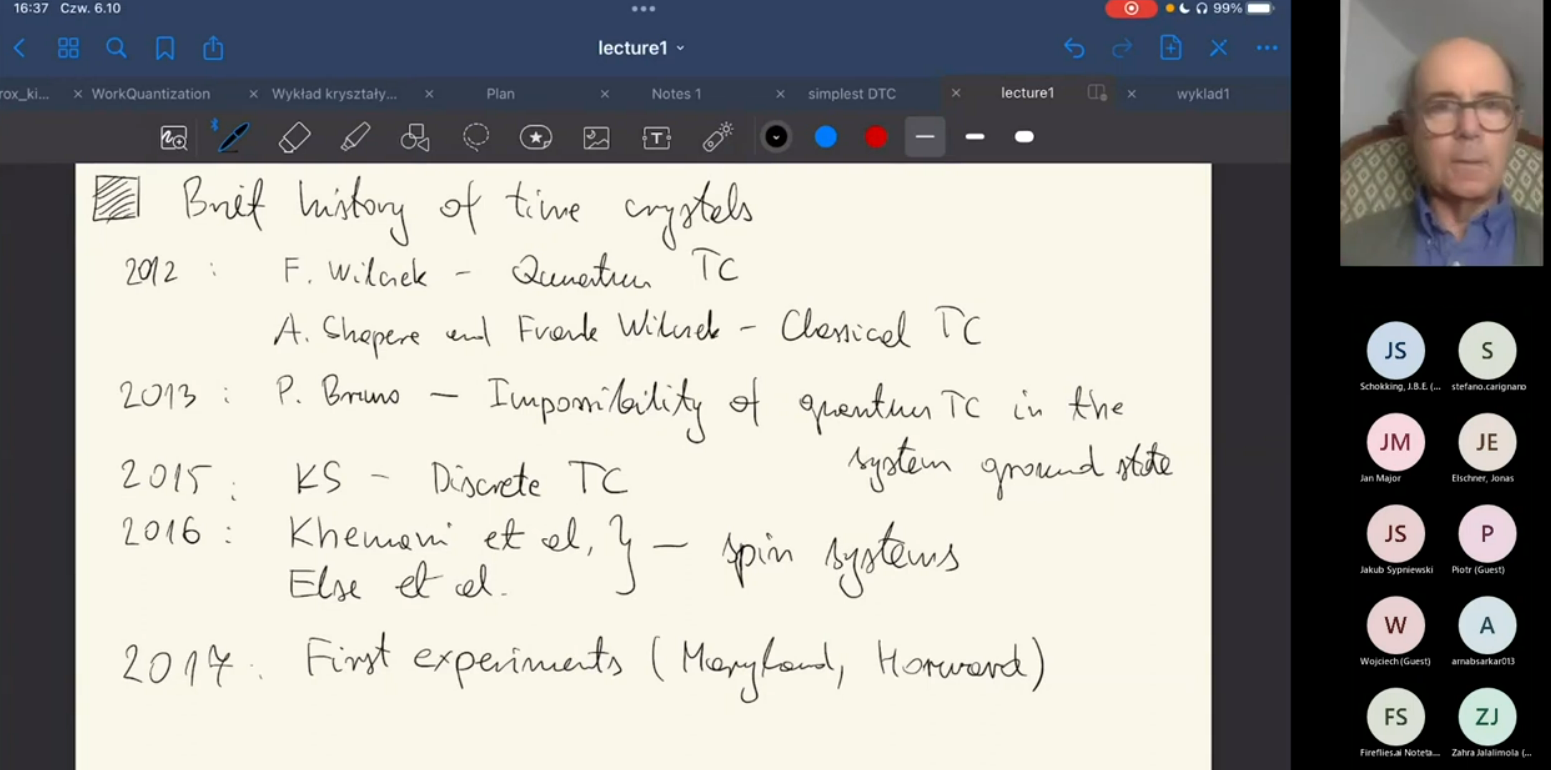 16:37 Czw. 6.10
99%
lecture1
rox_ki... WorkQuantization Wykład kryształy... Plan Notes 1 simplest DTC lecture1 wyklad1
Brief history of time crystals
2012 : F. Wilczek - Quantum TC
A. Shapere and Frank Wilczek - Classical TC
2013 : P. Bruno - Impossibility of quantum TC in the
system ground state
2015 : KS - Discrete TC
2016 : Khemani et al, } - spin systems
Else et al.
2017 : First experiments (Maryland, Harward)
JS S
Schokking, J.B.E. (... stefano.carignano
JM JE
Jan Major Elschner, Jonas
JS P
Jakub Sypniewski Piotr (Guest)
W A
Wojciech (Guest) arnabsarkar013
FS ZJ
Fireflies.ai Noteta... Zahra Jalalimola (...